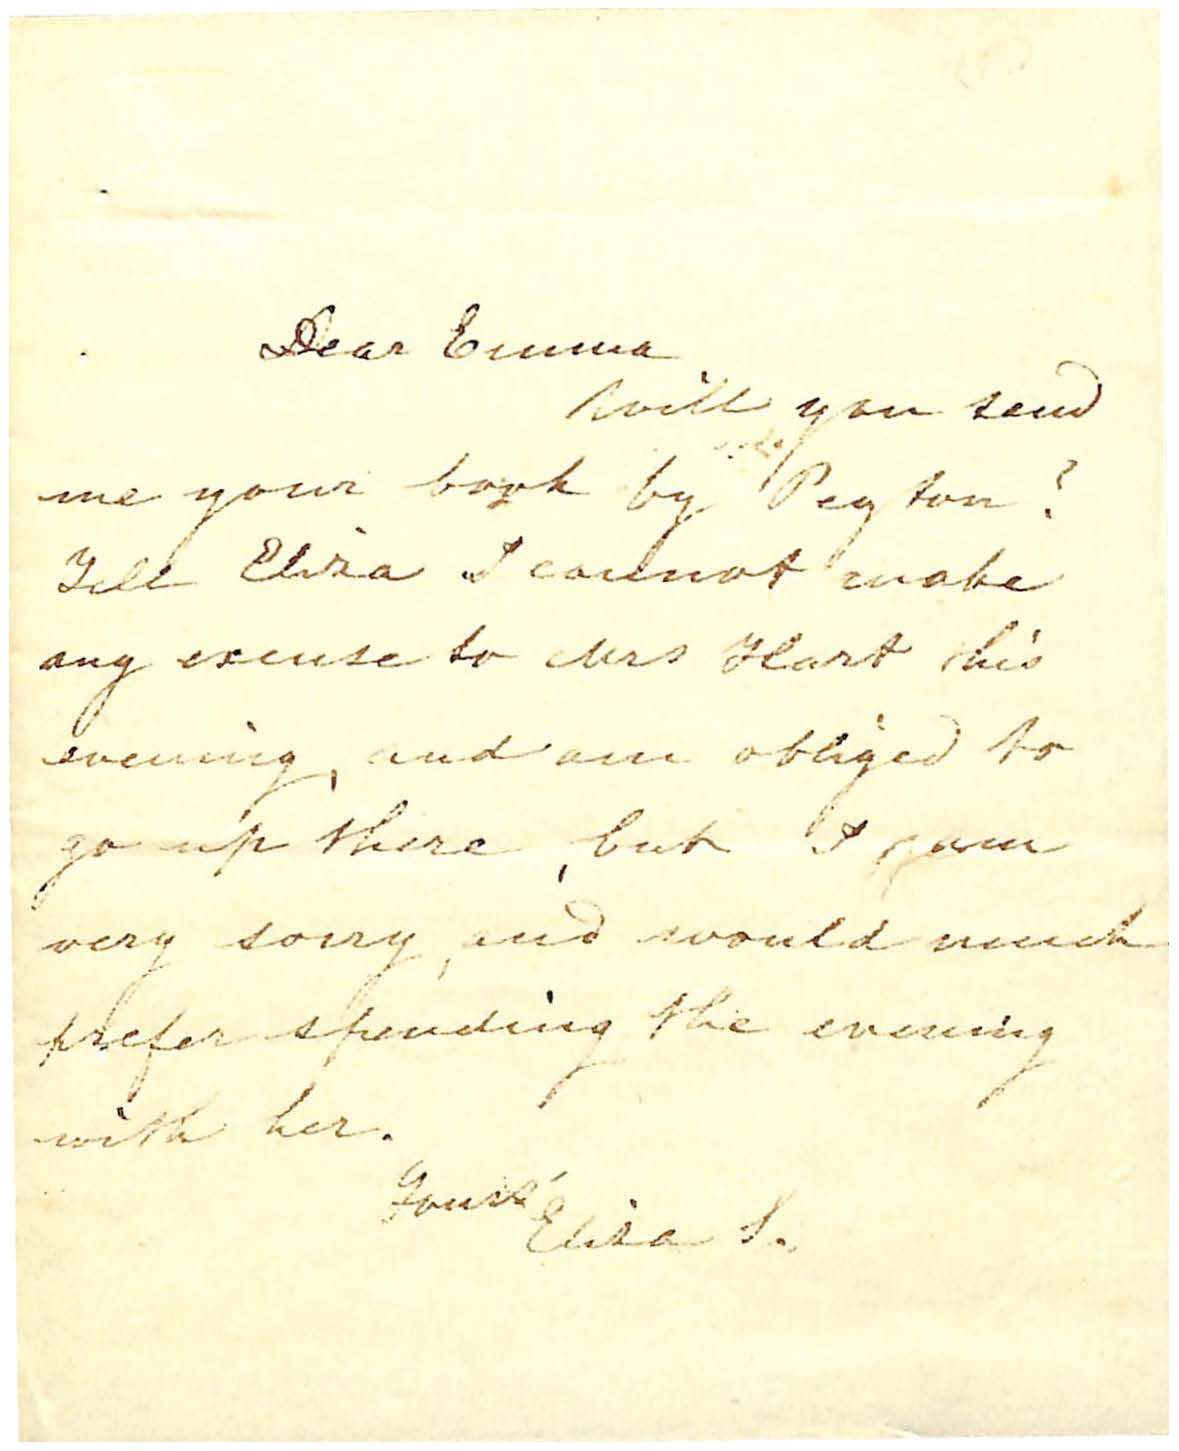 Dear Emma
Will you send
me your book by Peyton?
Tell Eliza I cannot make
any excuse to Mrs Hart this
evening, and am obliged to
go up there, but I am
very sorry, and would much
prefer spending the evening
with her.
Yours
Eliza S.